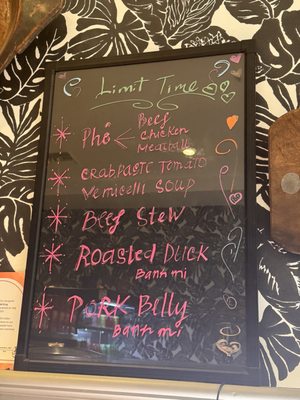 Limit Time
Phở
Beef
Chicken
Meatball
Crabpaste Tomato
Vermicelli Soup
Beef Stew
Roasted Duck
Banh mi
Pork Belly
Banh mi